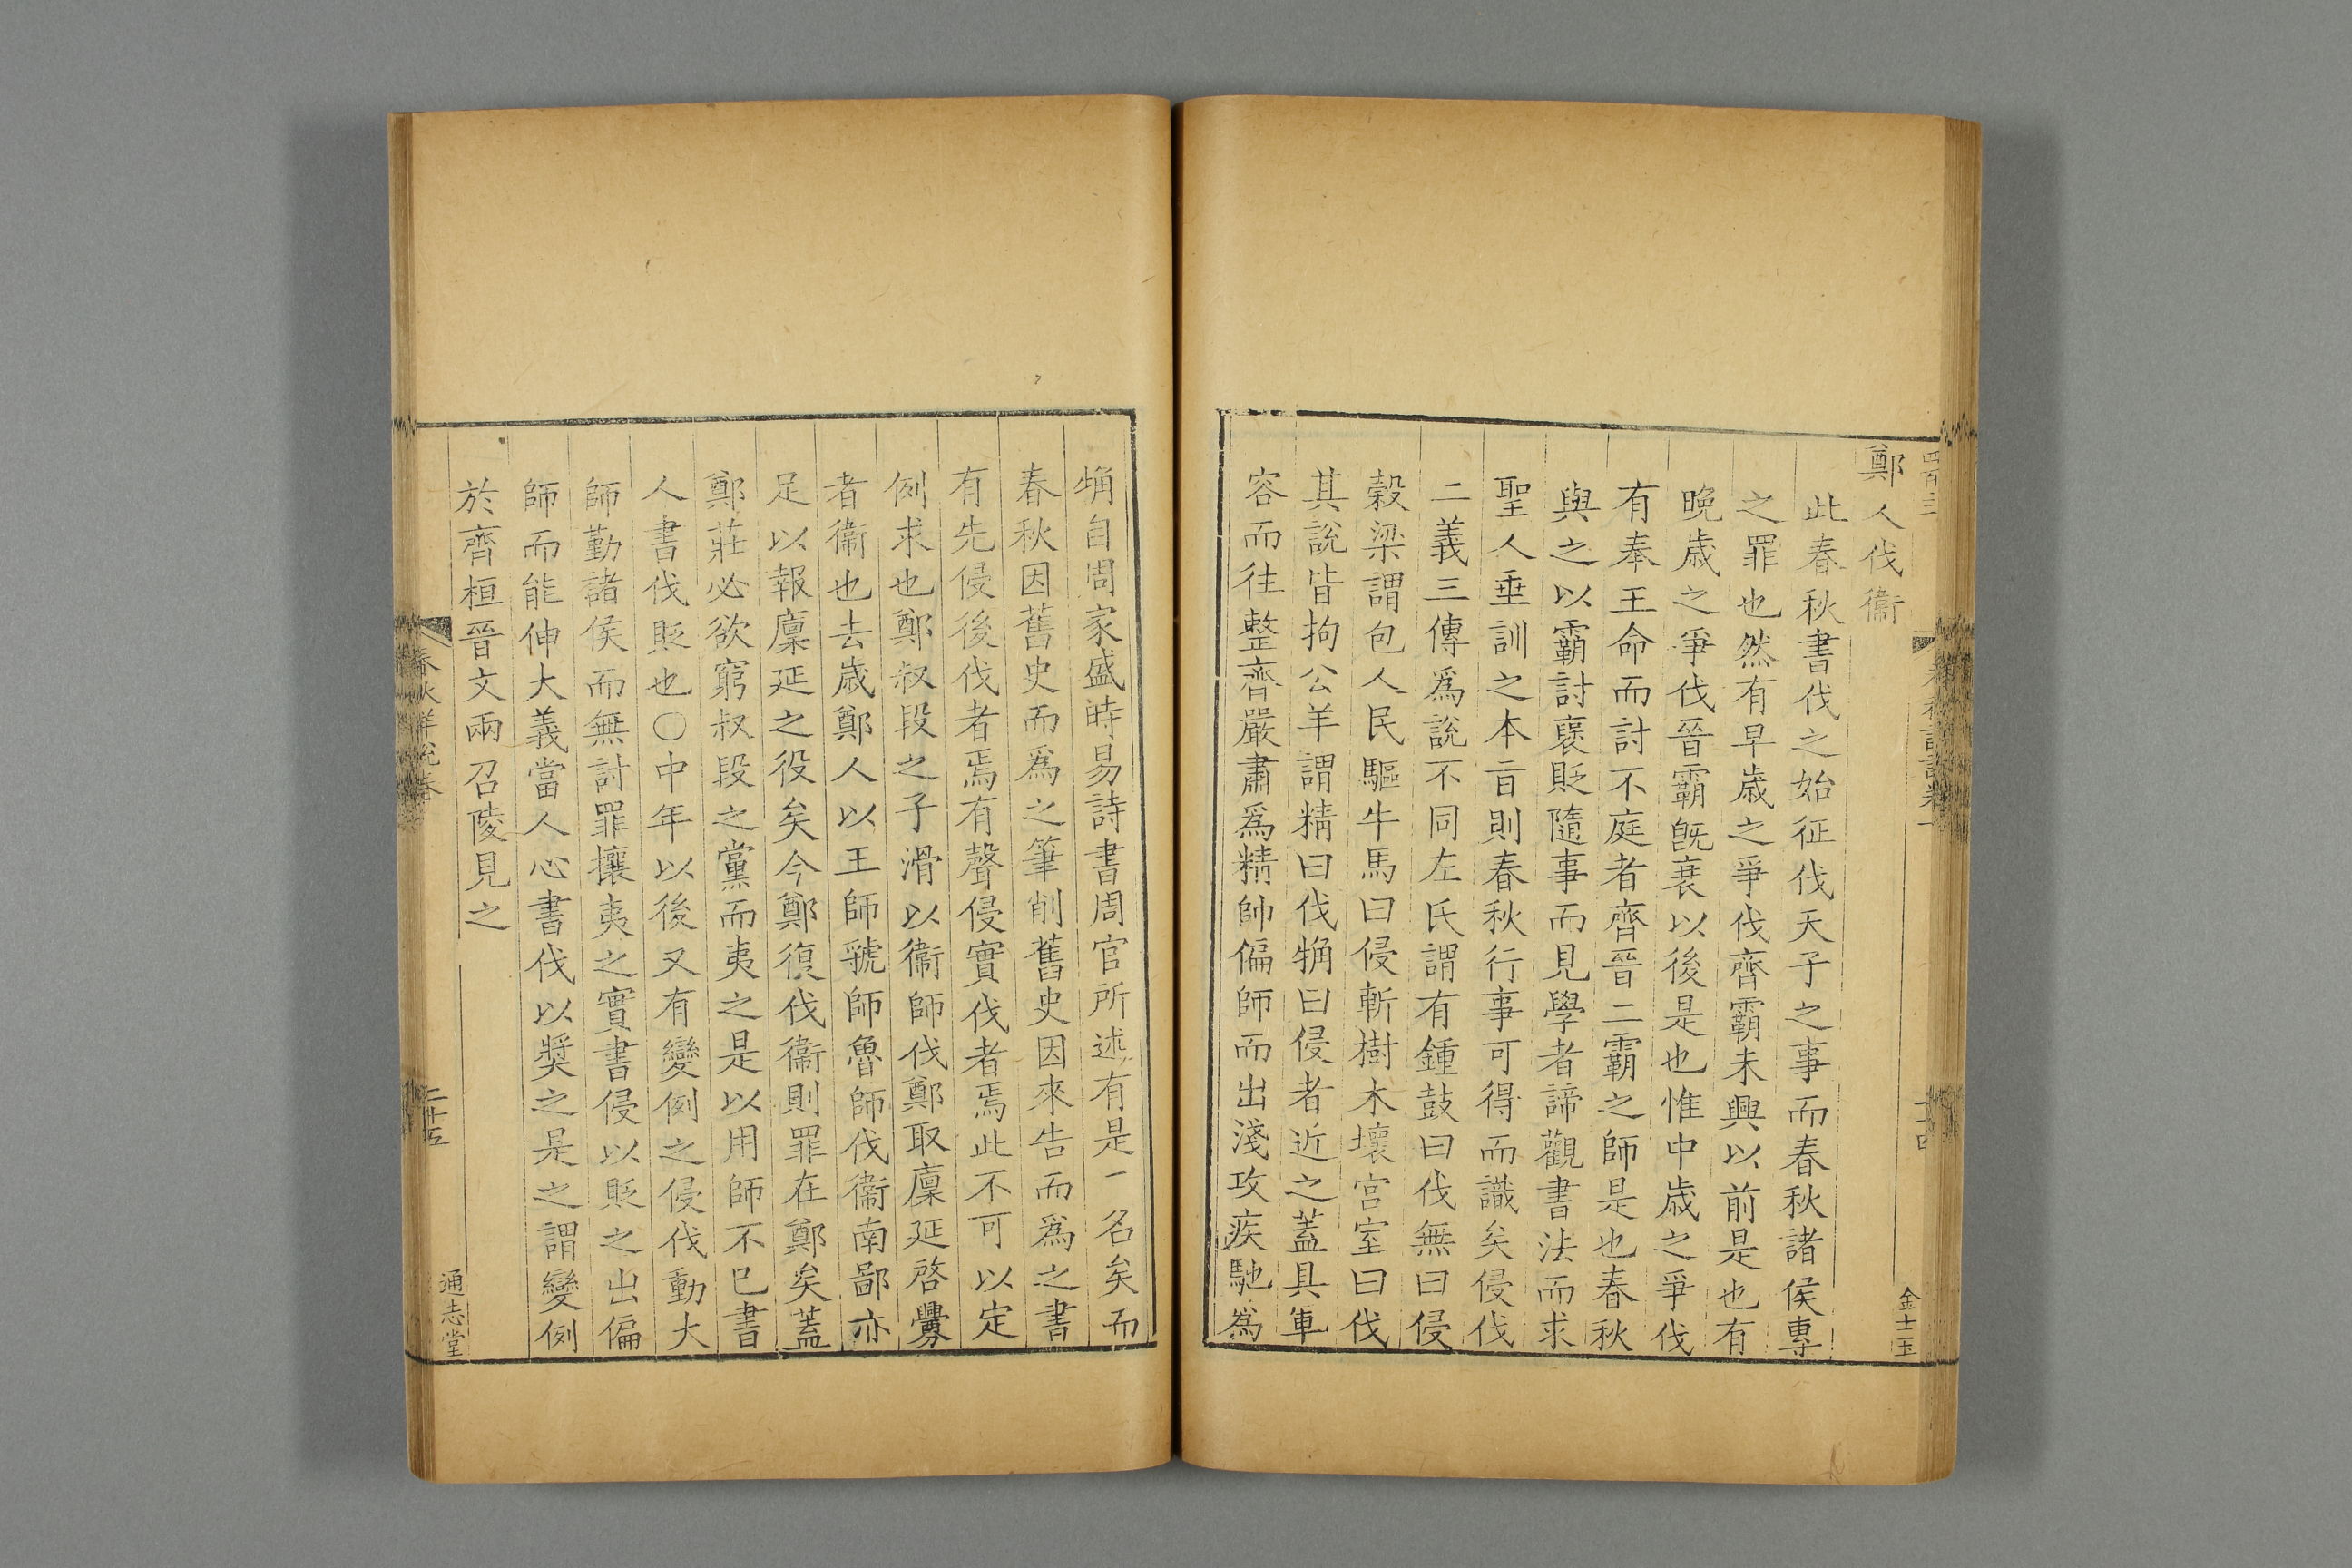 鄭人伐衞
此春秋書伐之始征伐天子之事而春秋諸侯專
之罪也然有早歲之爭伐齊霸未興以前是也有
晚歲之爭伐晉霸旣衰以後是也惟中歲之爭伐
有奉王命而討不庭者齊晉二霸之師是也春秋
與之以霸討襃貶隨事而見學者諦觀書法而求
聖人垂訓之本旨則春秋行事可得而識矣侵伐
二義三傳爲說不同左氏謂有鍾鼓曰伐無曰侵
穀梁謂包人民驅牛馬曰侵斬樹木壞宮室曰伐
其說皆拘公羊謂精曰伐觕曰侵者近之蓋具車
容而往整齊嚴肅爲精帥偏師而出淺攻疾馳爲
金士玉
觕自周家盛時易詩書周官所述有是一名矣而
春秋因舊史而爲之筆削舊史因來告而爲之書
有先侵後伐者焉有聲侵實伐者焉此不可以定
例求也鄭叔段之子滑以衞師伐鄭取廩延啓釁
者衞也去歲鄭人以王師虢師魯師伐衞南鄙亦
足以報廩延之役矣今鄭復伐衞則罪在鄭矣蓋
鄭莊必欲窮叔段之黨而夷之是以用師不已書
人書伐貶也〇中年以後又有變例之侵伐動大
師勤諸侯而無討罪攘夷之實書侵以貶之出偏
師而能伸大義當人心書伐以奬之是之謂變例
於齊桓晉文兩召陵見之
春秋詳說卷
二十五
通志堂